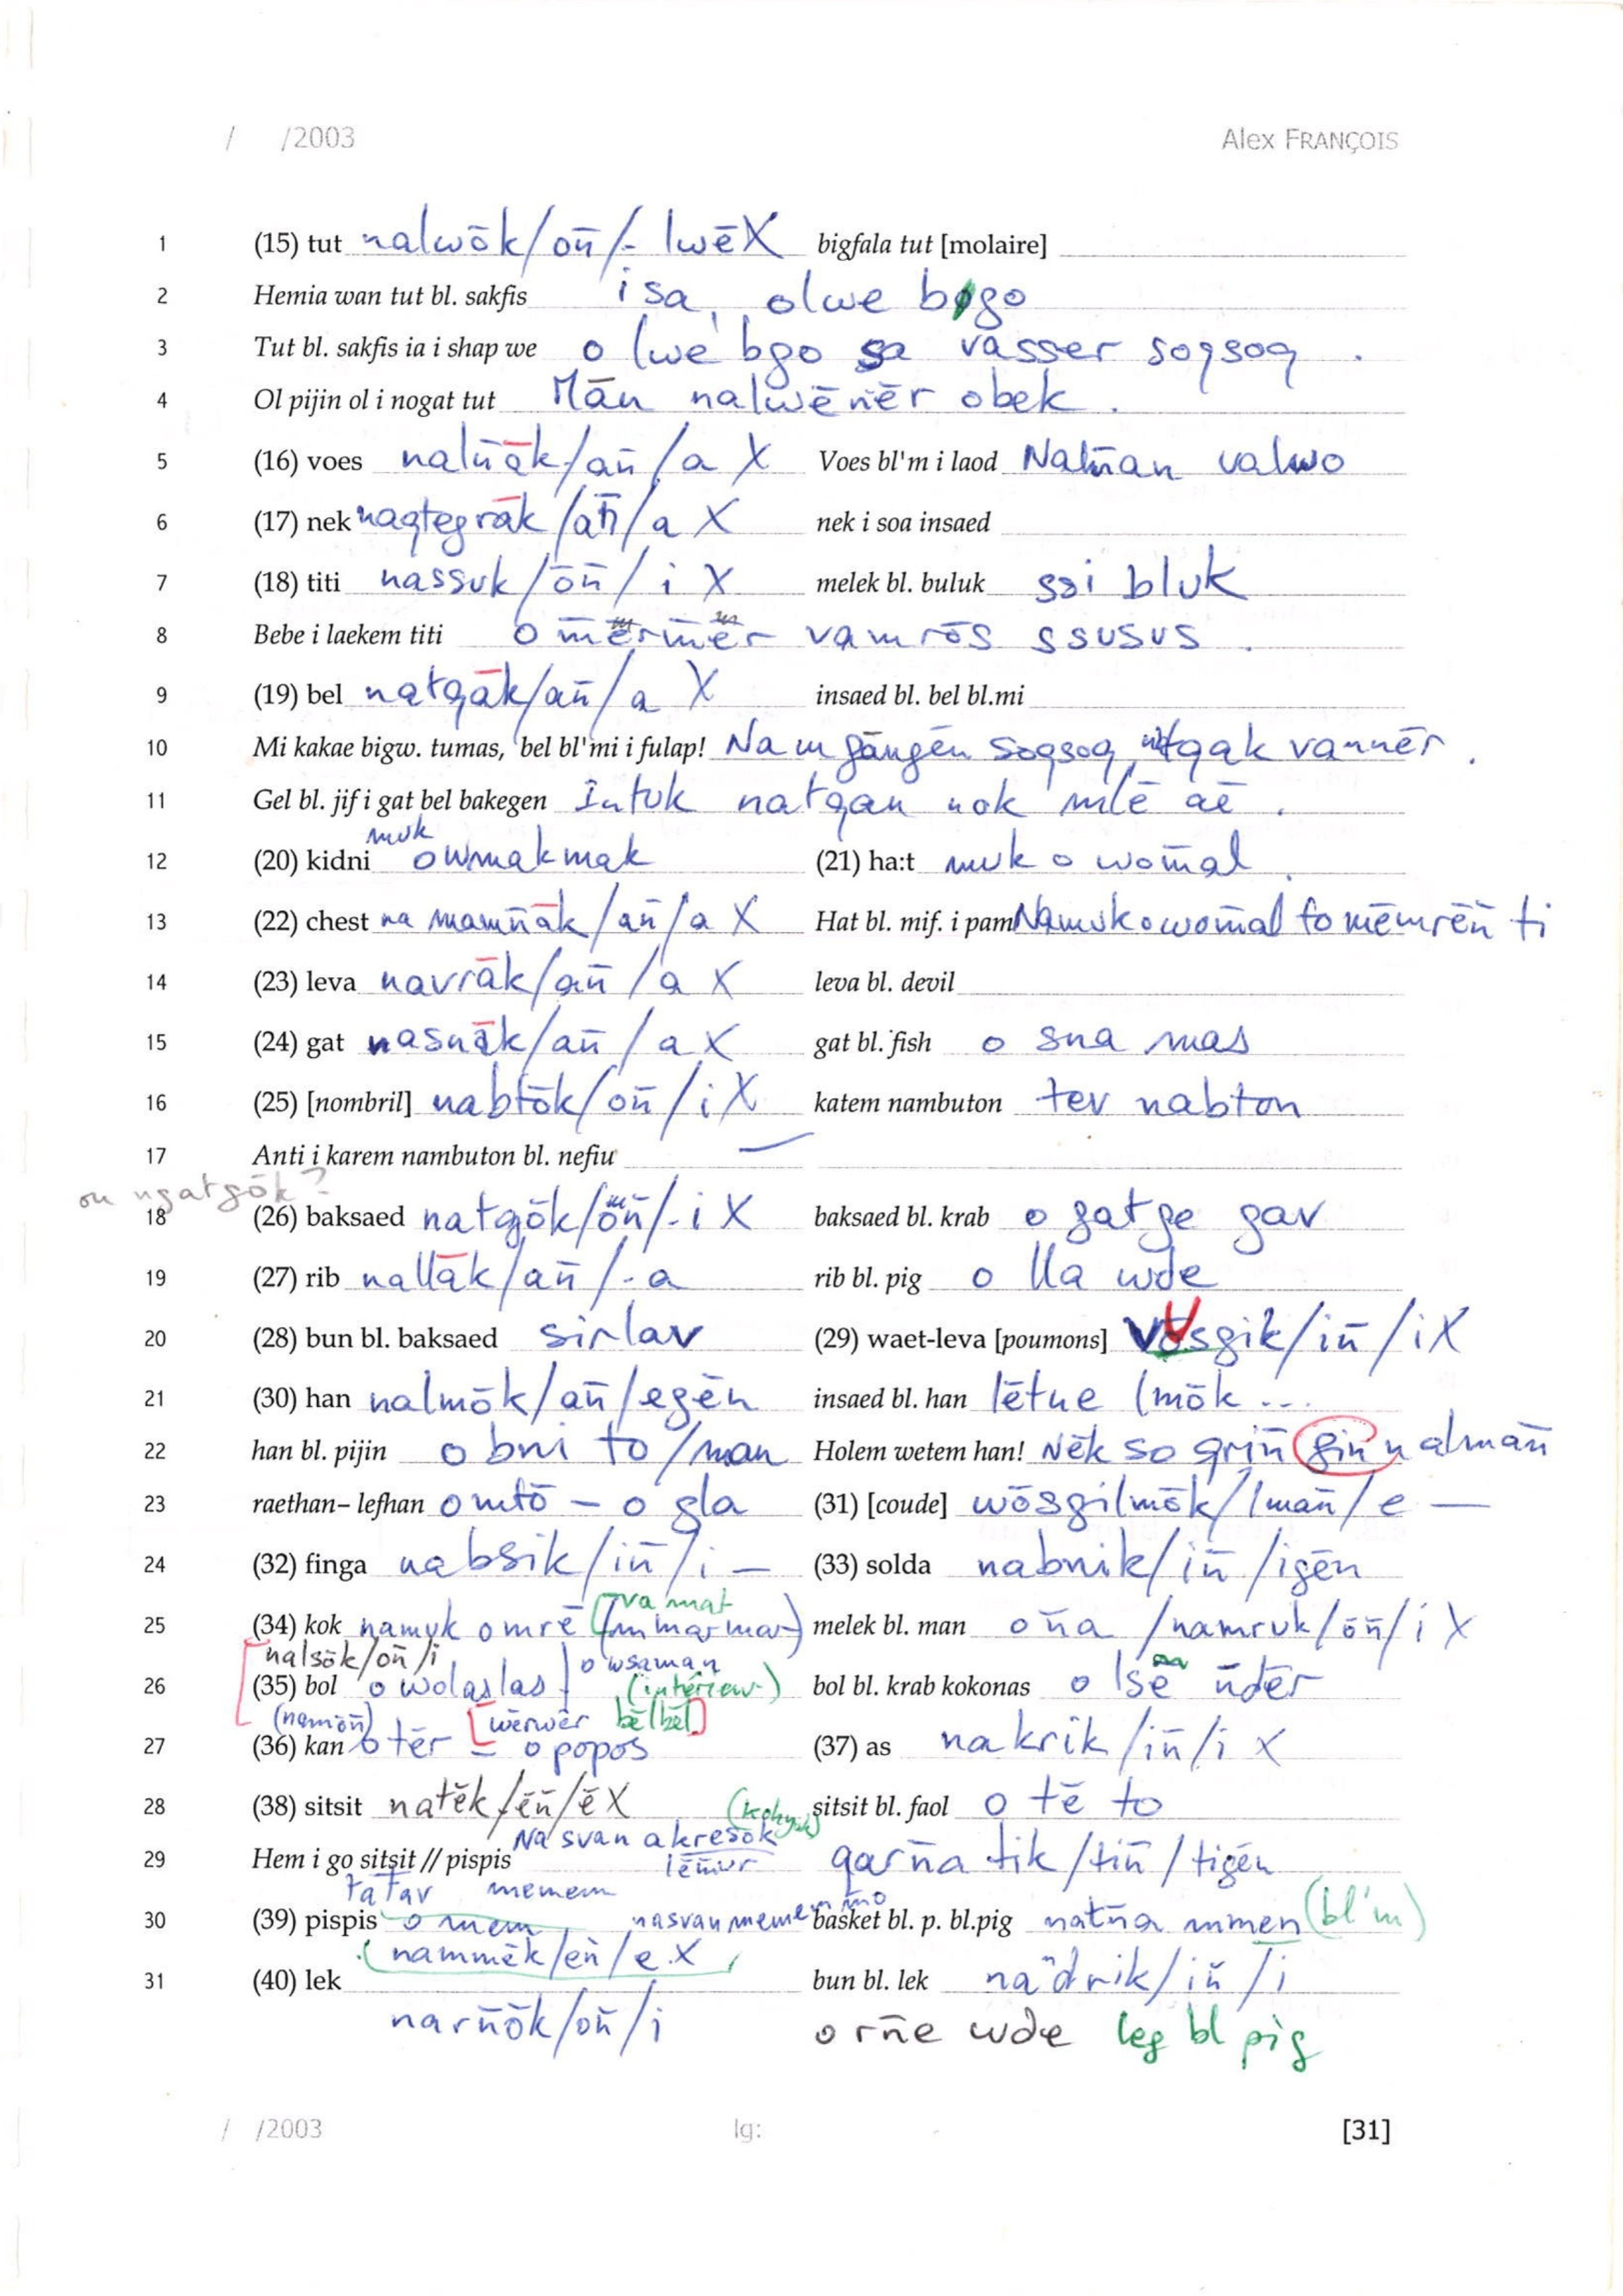 / /2003 Alex FRANÇOIS
1 (15) tut nalwōk/on̄/- lwēX bigfala tut [molaire]
2 Hemia wan tut bl. sakfis i sa, olwe bgo
3 Tut bl. sakfis ia i shap we o lwe bgo sa vasser soqsoq .
4 Ol pijin ol i nogat tut M̄ān nalwēnēr obek .
5 (16) voes naln̄āk/an̄/a X Voes bl'm i laod Naln̄an valwo
6 (17) nek naqtegrāk/an̄/a X nek i soa insaed
7 (18) titi nassuk/ōn̄/i X melek bl. buluk ssi bluk
8 Bebe i laekem titi o m̄ērm̄ēr vamrōs ssusus .
9 (19) bel natqāk/an̄/a X insaed bl. bel bl.mi
10 Mi kakae bigw. tumas, bel bl'mi i fulap! Na m gāngēn soqsoq, natqak vannēr .
11 Gel bl. jif i gat bel bakegen Intuk natqan nok mlē aē .
muk
12 (20) kidni owmakmak (21) ha:t muk o wom̄al
13 (22) chest na mamn̄āk/an̄/a X Hat bl. mif. i pam Namuk owom̄al to mēmrēn̄ ti
14 (23) leva navrāk/an̄/a X leva bl. devil
15 (24) gat nasnāk/an̄/a X gat bl. fish o sna mas
16 (25) [nombril] nabtōk/on̄/i X katem nambuton tev nabton
17 Anti i karem nambuton bl. nefiu —
ou ngatgōk?
18 (26) baksaed natgōk/ōn̄/-i X baksaed bl. krab o gatge gav
19 (27) rib nallāk/an̄/-a rib bl. pig o lla wde
20 (28) bun bl. baksaed sirlav (29) waet-leva [poumons] vusgik/in̄/i X
21 (30) han nalmōk/an̄/egēn insaed bl. han lētne lmōk ...
22 han bl. pijin o bni to/man Holem wetem han! Nēk so qrin̄ gin̄ nalman̄
23 raethan– lefhan o mtō – o gla (31) [coude] wōsgilmōk/lman̄/e —
24 (32) finga nabsik/in̄/i — (33) solda nabnik/in̄/igēn
va mat
25 (34) kok namuk omrē (mmarmar) melek bl. man on̄a /namruk/ōn̄/i X
nalsōk/on̄/i o wsaman
26 (35) bol o wolaslas (intérieur) bol bl. krab kokonas o lsē n̄dēr
(namōn̄) [wērwēr bēlbēl]
27 (36) kan o tēr – o popos (37) as nakrik/in̄/i X
28 (38) sitsit natēk/ēn̄/ē X sitsit bl. faol o tē to
Na svan akresōk
29 Hem i go sitsit // pispis lēn̄ur qarn̄a tik/tin̄/tigēn
tatav memem
30 (39) pispis o mem nasvan memem m̄o basket bl. p. bl.pig natn̄a mmen (bl'm)
(nammēk/en̄/e X
31 (40) lek bun bl. lek na"drik/in̄/i
narn̄ōk/on̄/i o rn̄e wde leg bl pig
/ /2003 lg: [31]